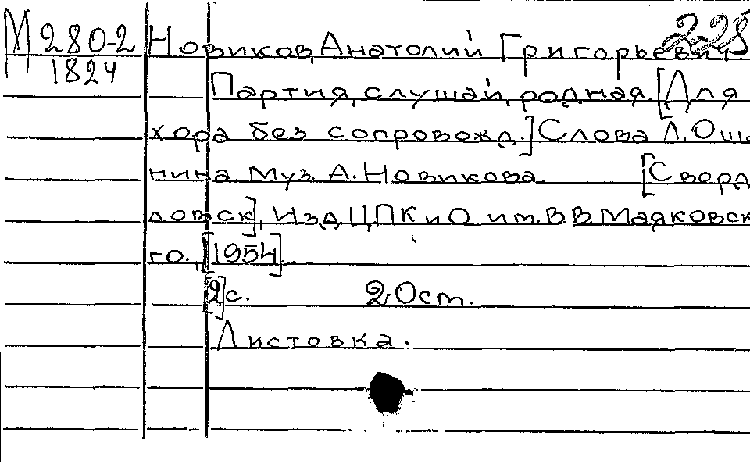 М 280-2
1824
225
Новиков, Анатолий Григорьевич
Партия, слушай, родная. [Для
хора без сопровожд.] Слова Л. Оша
нина Муз. А. Новикова [Сверд
ловск], Изд ЦПК и О им. В В Маяковск
го., [1954]
[2] с. 2. Ост.
Листовка.